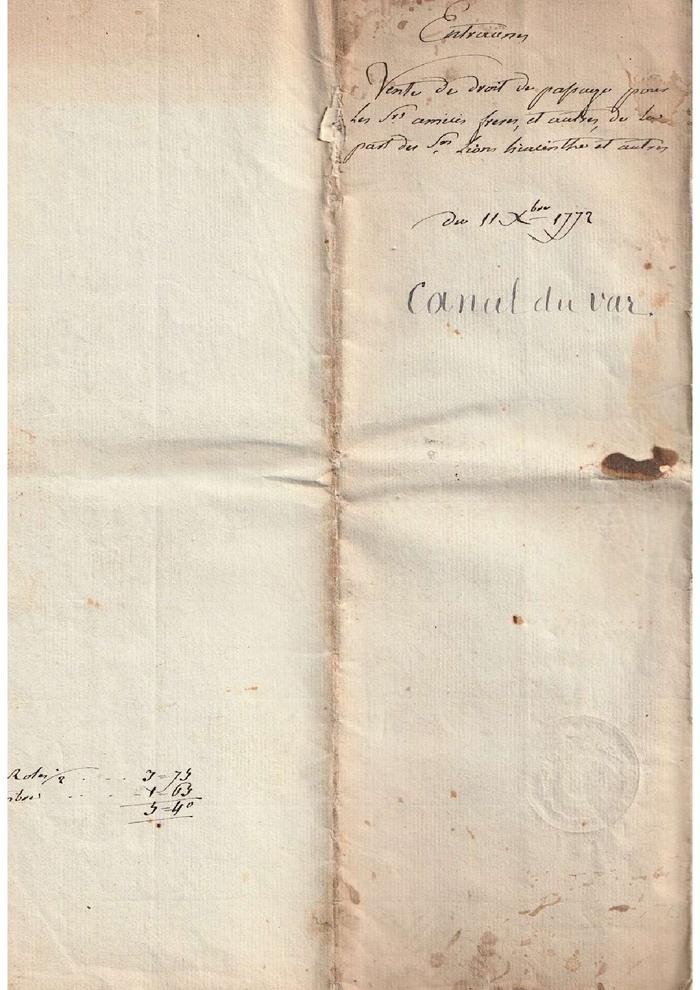 Entraunes
Vente de droit de passage pour
les Srs amiées freres, et autres, de la
part des Srs Lions hiacinthe et autres
du 11 Xbre 1772
Canal du var.
Roles 2 3=75
mbre 1 65
5=40